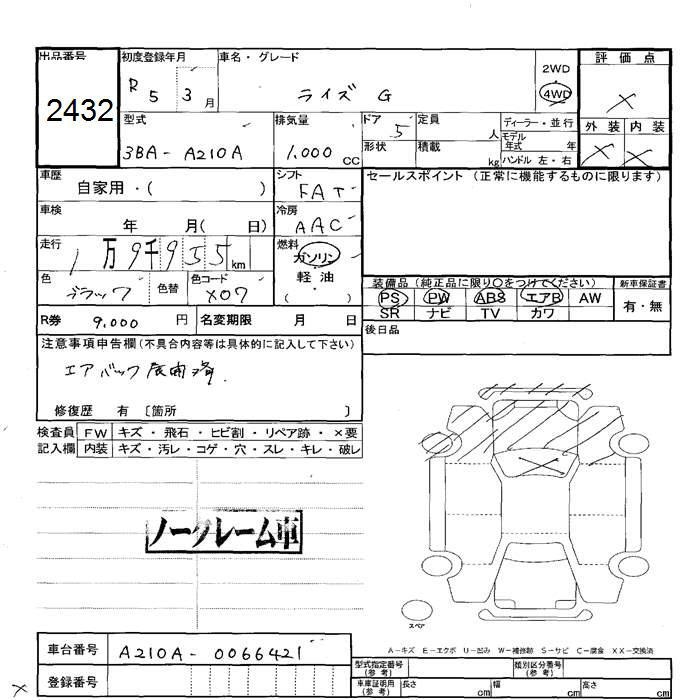 出品番号 2432
初度登録年月 R 5 3 月
車名・グレード ライズ G
2WD
4WD
評価点
×
外装 内装
× ×
型式 3BA-A210A
排気量 1.000 cc
ドア 5
形状
定員 人
積載 kg
ディーラー・並行
モデル年式 年
ハンドル 左・右
車歴 自家用・( )
シフト FAT
セールスポイント (正常に機能するものに限ります)
車検 年 月( 日)
冷房 AAC
走行 1万9千955 km
燃料 ガソリン 軽油 ( )
色 ブラック 色替
色コード X07
装備品 (純正品に限り○をつけてください)
新車保証書
PS PW ABS エアB AW
有・無
SR ナビ TV カワ
R券 9.000 円
名変期限 月 日
後日品
注意事項申告欄(不具合内容等は具体的に記入して下さい)
エアバック展開済.
修復歴 有 [箇所 ]
検査員 FW キズ・飛石・ヒビ割・リペア跡・×要
記入欄 内装 キズ・汚レ・コゲ・穴・スレ・キレ・破レ
ノークレーム車
スペア
A-キズ E-エクボ U-凹み W-補修跡 S-サビ C-腐食 XX-交換済
車台番号 A210A-0066421
登録番号
型式指定番号(参考)
類別区分番号(参考)
車庫証明用(参考) 長さ cm 幅 cm 高さ cm
×